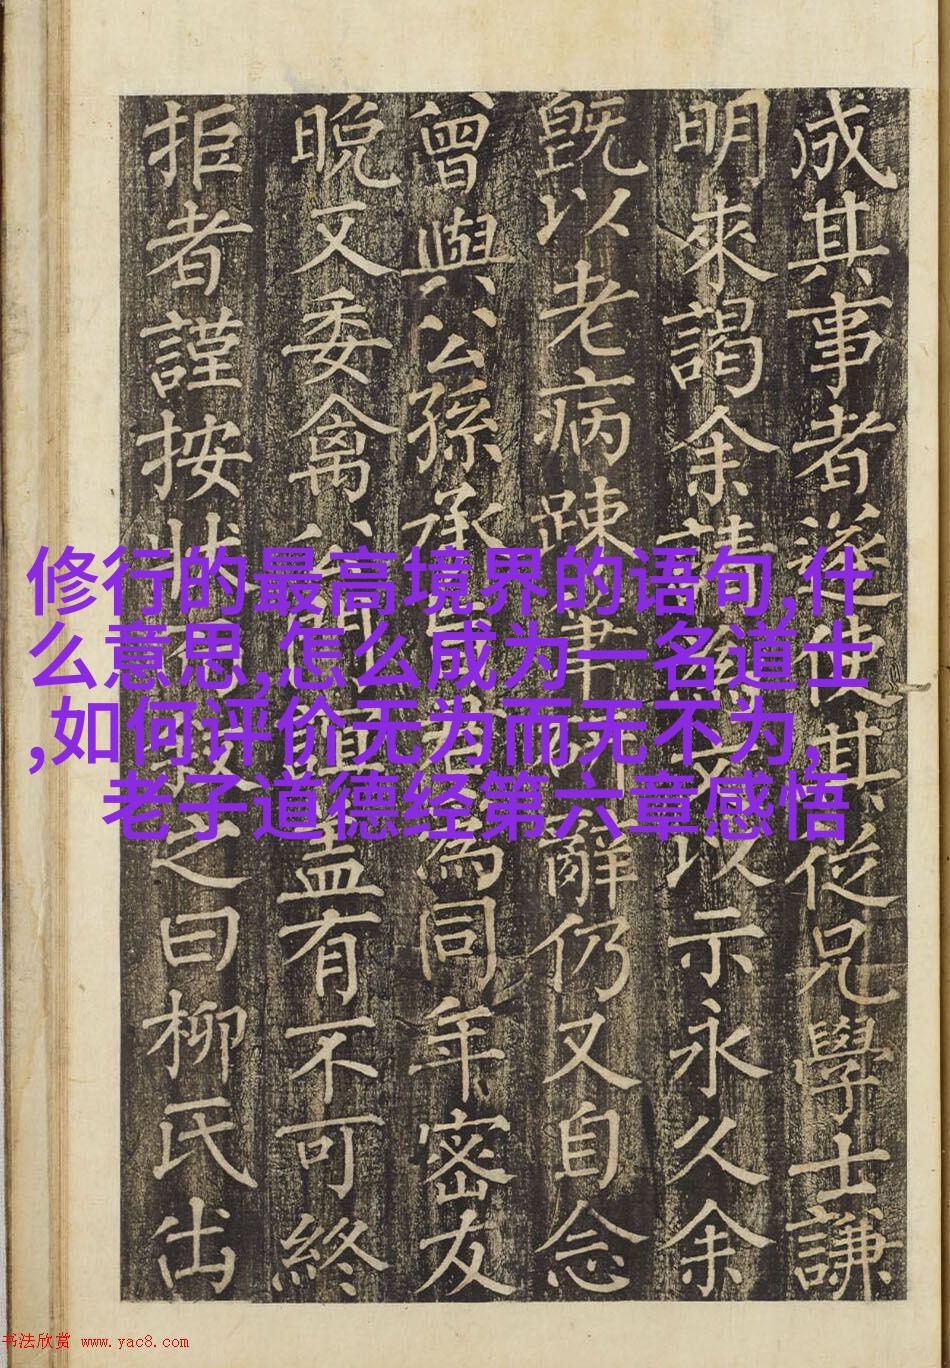 成其事者遂使其從兄學士謙
明來謁余請以示永久余
既以老病踈辭仍又自念
曾與公孫承為同年密友
晚又委禽有不可終
拒者謹按狀之曰柳氏出
修行的最高境界的语句,什
么意思,怎么成为一名道士
,如何评价无为而无不为,
老子道德经第六章感悟
书法欣赏 www.yac8.com